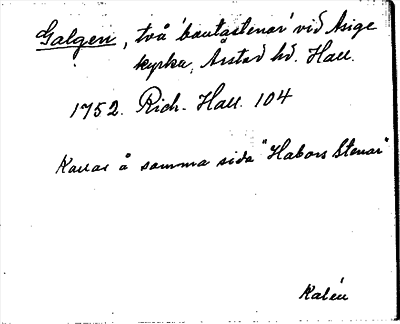 Galgen, två 'bautastenar' vid Asige
kyrka, Årstad hd. Hall.
1752. Rich. Hall. 104
Kallas å samma sida "Habors Stenar"
Kalén